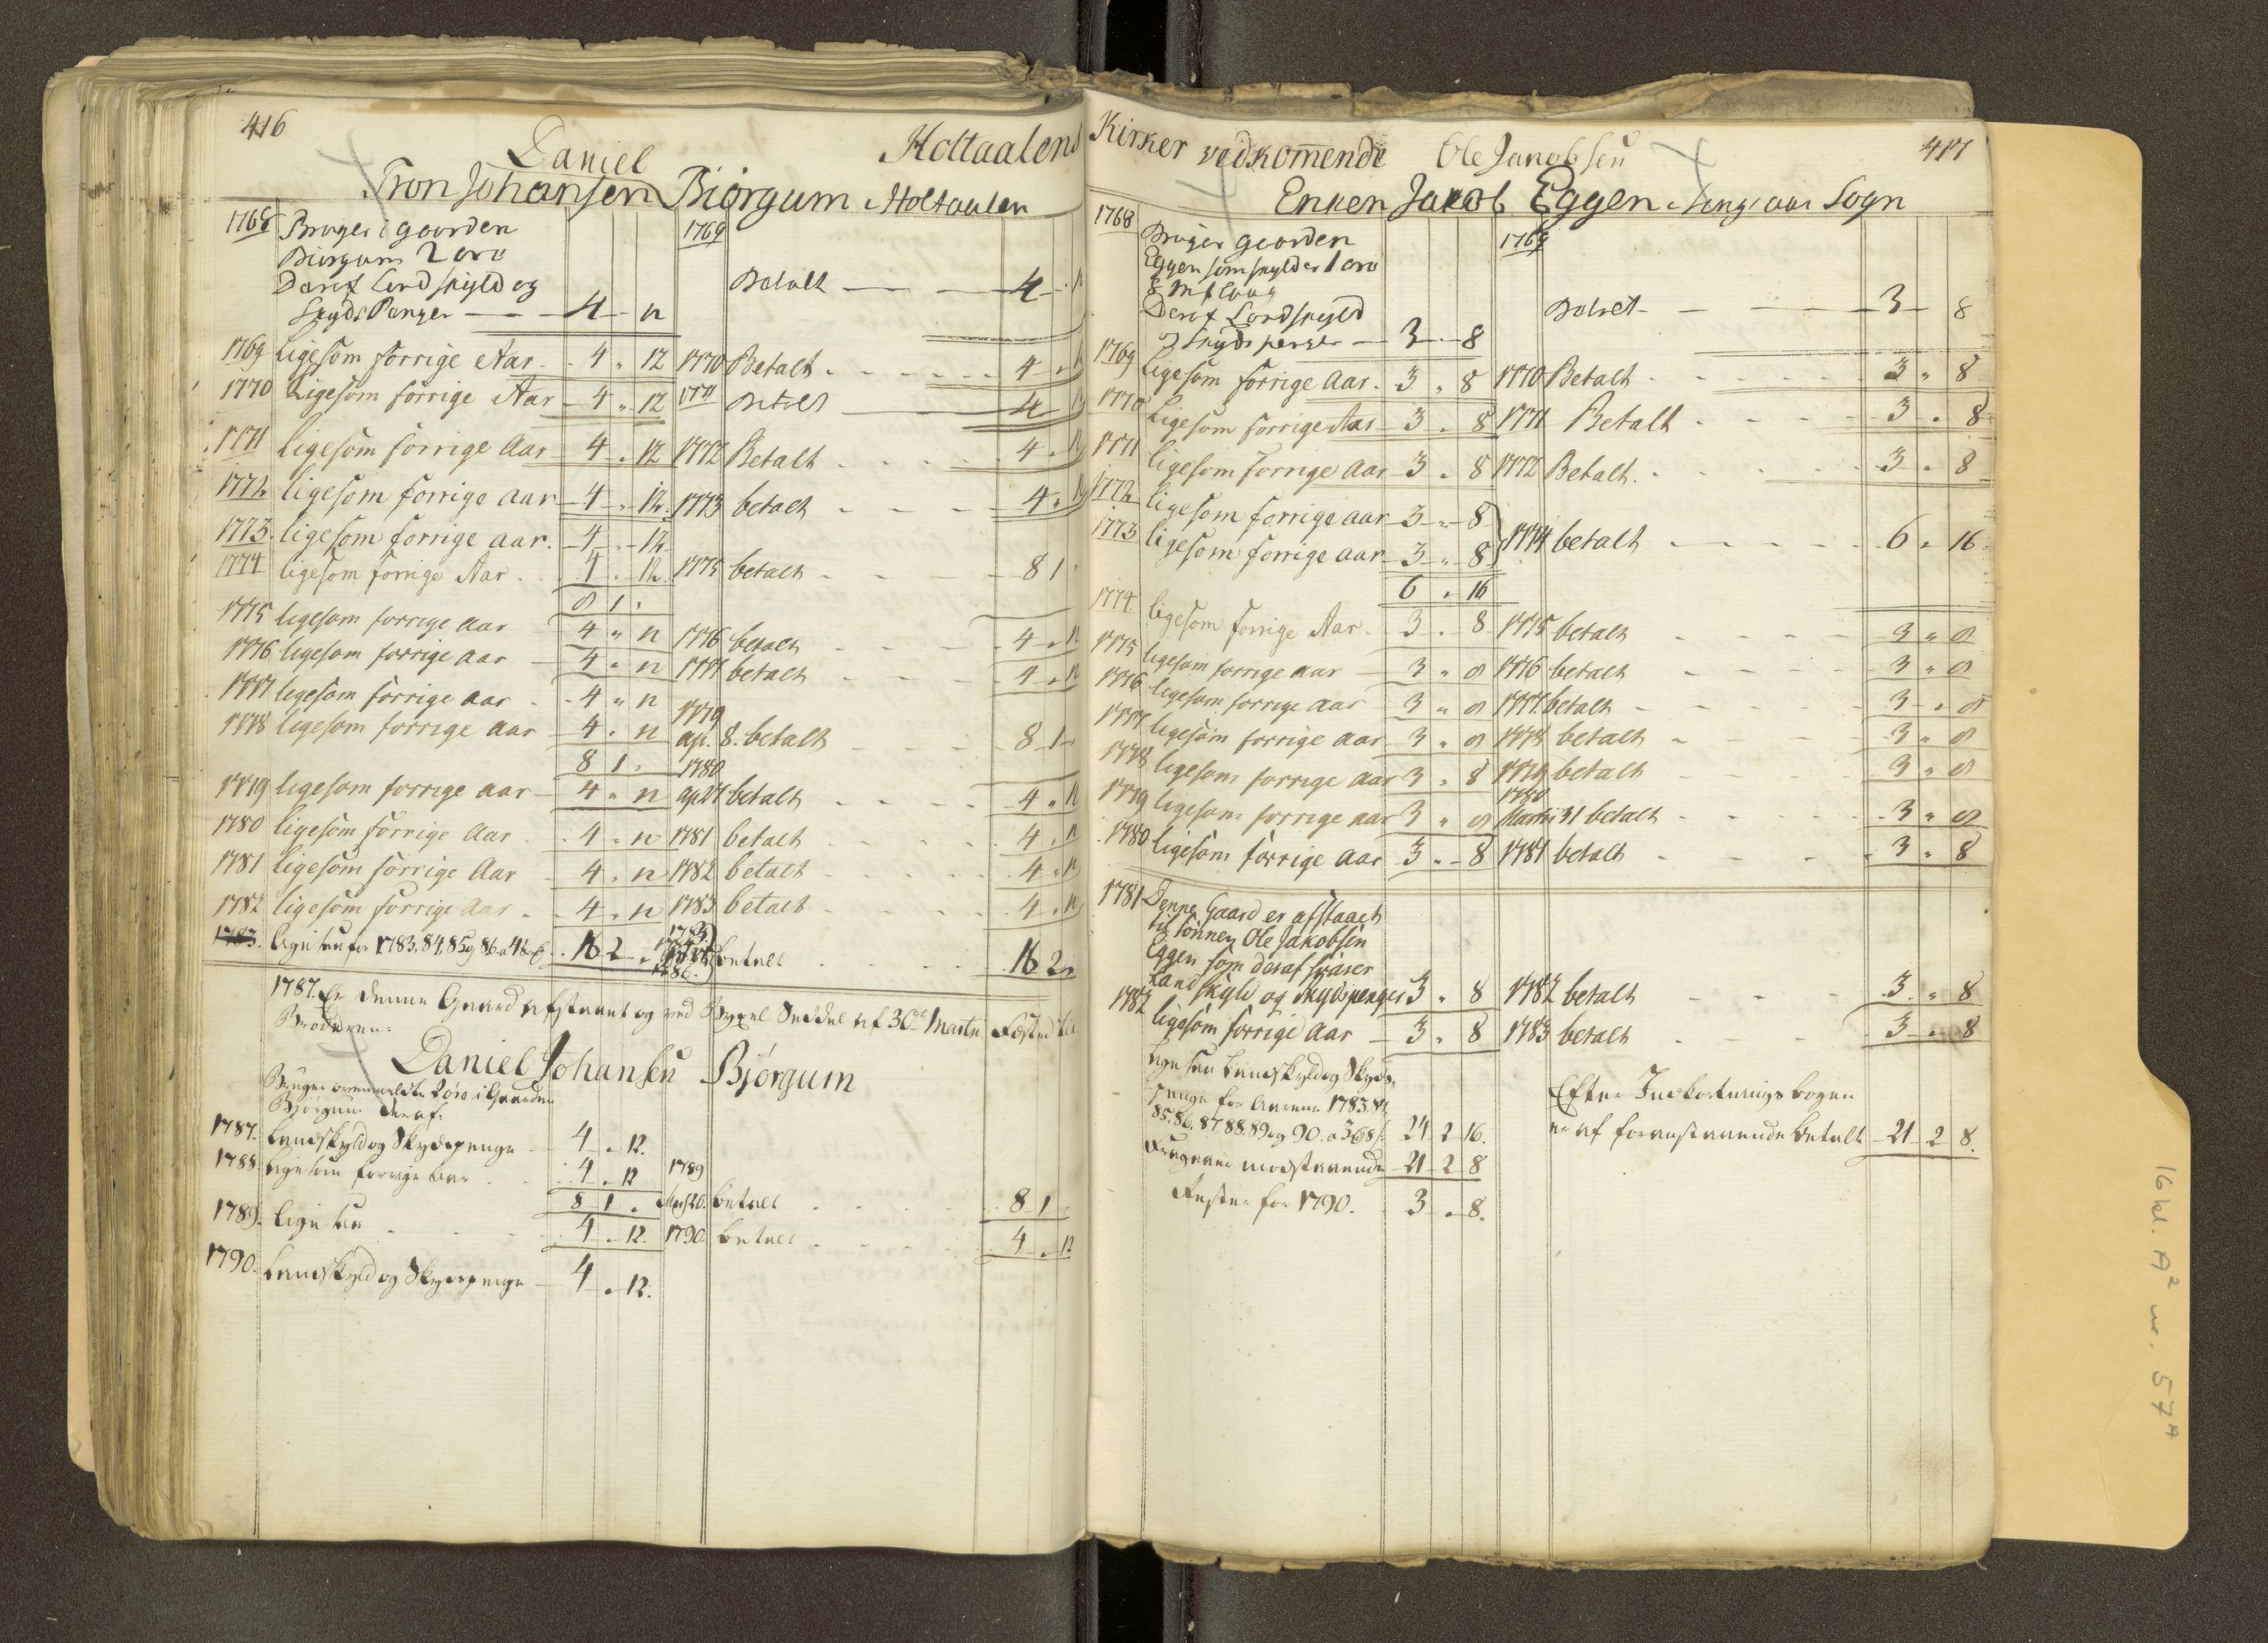 416
Holtaalens
Daniel
Tron Johansen Biörgum Holtaalen
1768 Bruger i Gaarden 1769
Biörgum 2 øre
Deraf Landskyld og Betalt 4 "
SkydsPenger 4 12
1769 Ligesom forrige Aar 4 " 12 1770 Betalt 4 "
1770 Ligesom forrige Aar 4 " 12 1771 Betalt 4
1771 Ligesom forrige Aar 4 " 12 1772 Betalt 4 "
1772 ligesom forrige aar 4 " 12 1773 betalt 4 "
1773 ligesom forrige aar 4 " 12
1774 ligesom forrige Aar 4 " 12 1775 betalt 8 1
8 1 "
1775 ligesom forrige aar 4 " 12 1776 betalt 4 " 12
1776 ligesom forrige aar 4 " 12 1777 betalt 4 " 12
1777 ligesom forrige aar 4 " 12 1779
1778 ligesom forrige aar 4 " 12 ap. 8. betalt 8 1 "
8 1 " 1780
1779 ligesom forrige aar 4 " 12 ap 27 betalt 4 " 12
1780 ligesom forrige Aar 4 " 12 1781 betalt 4 " 12
1781 ligesom forrige Aar 4 " 12 1782 betalt 4 " 12
1782 ligesom forrige Aar 4 " 12 1783 betalt 4 " 12
1783. ligesaa for 1783, 84, 85 og 86 a 4 16 2 " 1786. betalt 16 2 "
1787. Er denne Gaard afstaaet og ved Bygsel Seddel af 30te Martii Fæsted til
Broderen:
Daniel Johansen Bjørgum
Bruger ovenmeldte 2 øre i Gaarden
Bjørgum deraf:
1787. Landskyld og Skydspenge 4 " 12.
1788. ligesom forrige Aar 4 " 12 1789
8 1 " 26. betalt 8 1 "
1789. ligesaa 4 " 12. 1790. betalt 4 " 12
1790. Landskyld og Skydspenge 4 " 12.
Kirker vedkommende Ole Jacobsen 417
Enken Jakob Eggen Sogn
1768 Bruger Gaarden 1769
Eggen som skylder 1 øre
8
Deraf Landskyld Betalt 3 8
Skyds penger 3 8
1769 Ligesom forrige Aar 3 " 8 1770 Betalt 3 " 8
1770 Ligesom forrige Aar 3 " 8 1771 Betalt 3 " 8
1771 Ligesom forrige Aar 3 " 8 1772 Betalt 3 " 8
1772 ligesom forrige aar 3 " 8
1773 ligesom forrige aar 3 " 8 1774 betalt 6 " 16
6 " 16
1774 ligesom forrige Aar 3 " 8 1775 betalt 3 " 8
1775 ligesom forrige aar 3 " 8 1776 betalt 3 " 8
1776 ligesom forrige aar 3 " 8 1777 betalt 3 " 8
1777 ligesom forrige aar 3 " 8 1778 betalt 3 " 8
1778 ligesom forrige aar 3 " 8 1779 betalt 3 " 8
1780
1779 ligesom forrige aar 3 " 8 Martii 31 betalt 3 " 8
1780 ligesom forrige Aar 3 " 8 1781 betalt 3 " 8
1781 Denne Gaard er afstaaet
til Sønnen Ole Jakobsen
Eggen som deraf svarer
Landskyld og Skydspenger 3 " 8 1782 betalt 3 " 8
1782 ligesom forrige Aar 3 " 8 1783 betalt 3 " 8
ligesaa Landskyld og Skyds-
penge for Aarene 1783. 84. Efter Indkorterings bogen
85. 86. 87. 88. 89 og 90. a 3 " 8 24 2 16. er af foranstaaende betalt 21 2 8.
modstaaende 21 2 8
Rester for 1790. 3 " 8.
16 kl. A² nr. 57ᴬ